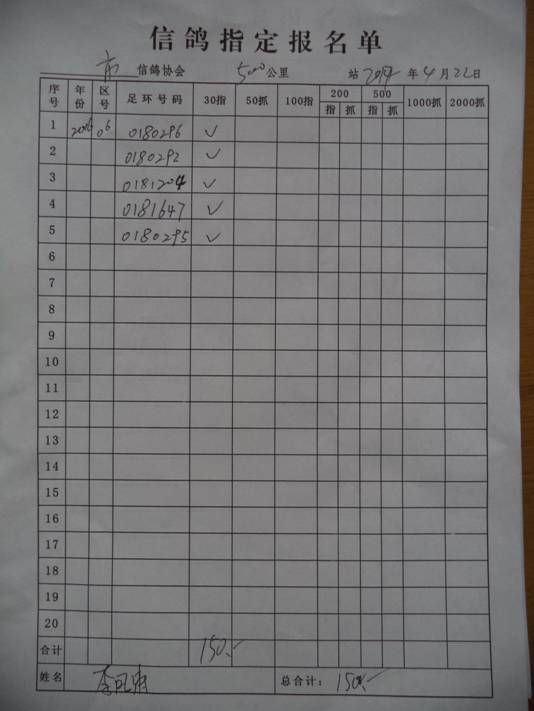 信鸽指定报名单
市 信鸽协会 500公里 站 2017年4月22日
序号 年份 区号 足环号码 30指 50抓 100指 200 指 抓 500 指 抓 1000抓 2000抓
1 2016 06 0180296 ✓
2 0180292 ✓
3 0181204 ✓
4 0181647 ✓
5 0180295 ✓
6
7
8
9
10
11
12
13
14
15
16
17
18
19
20
合计 150.-
姓名 李 总合计: 150.-